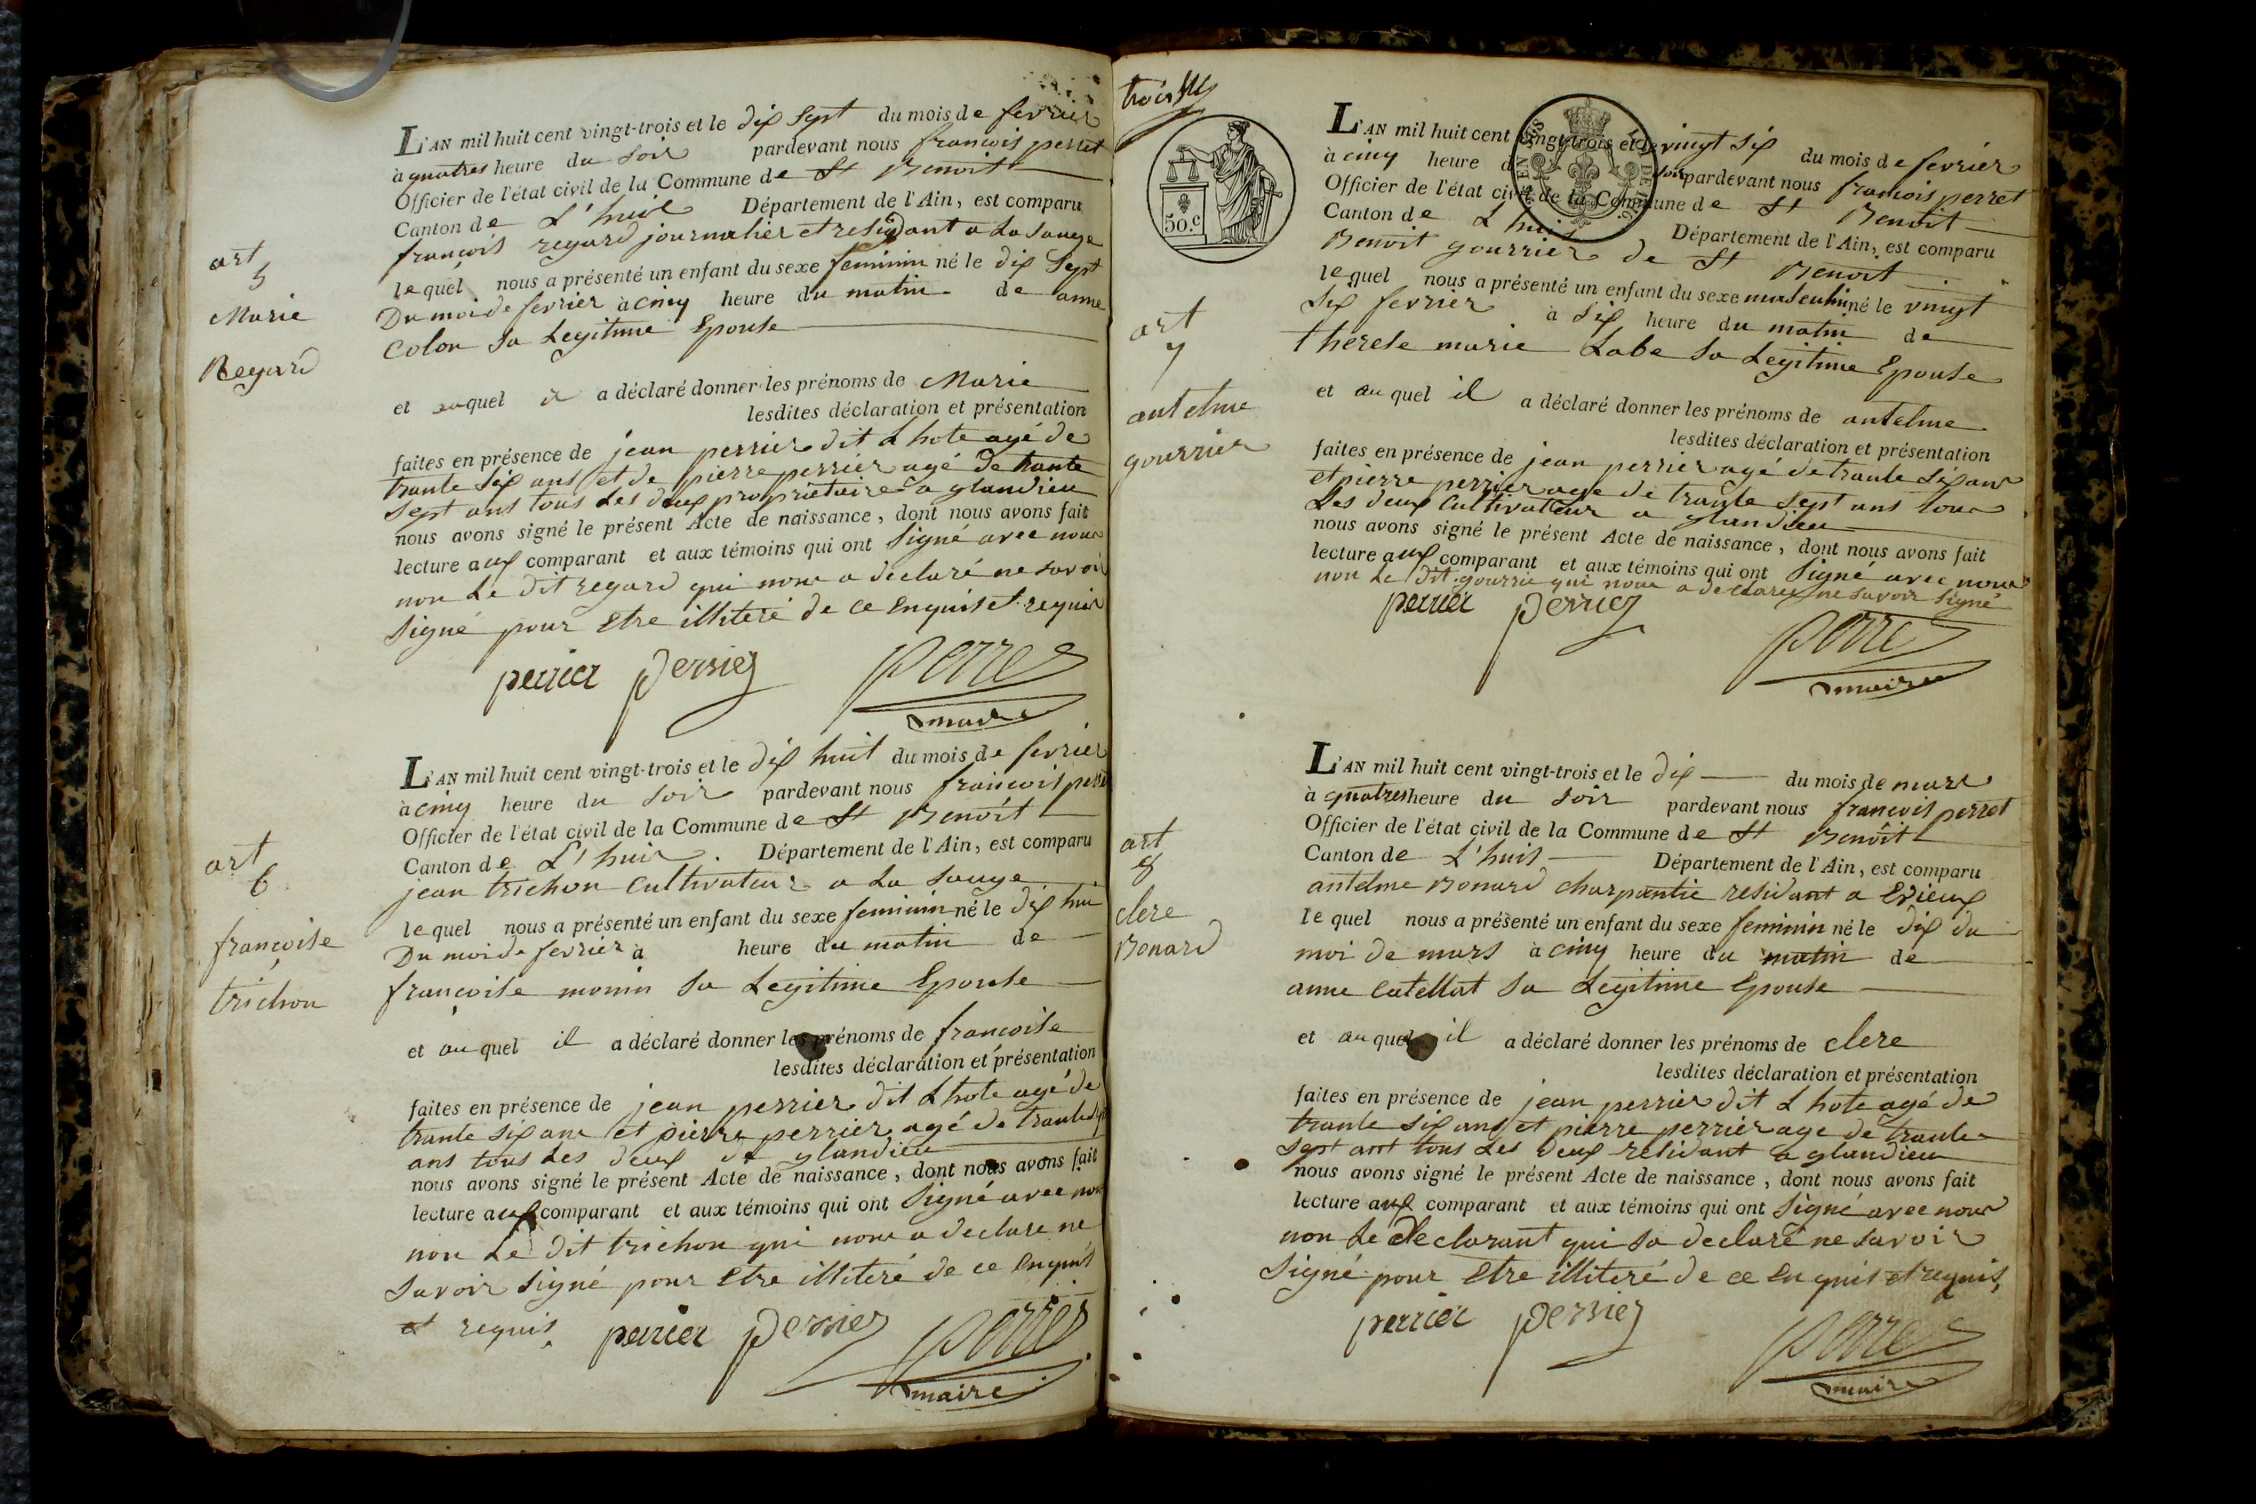 L'AN mil huit cent vingt-trois et le dix sept du mois de fevrier
à quatres heure du soir pardevant nous francois perret
Officier de l'état civil de la Commune de St Benoit
Canton de L'huis Département de l'Ain, est comparu
francois regard journalier et residant a La sauge
lequel nous a présenté un enfant du sexe feminin né le dix sept
Du moi de fevrier à cinq heure du matin de anne
Colon sa Legitime Epouse
et auquel il a déclaré donner les prénoms de Marie
lesdites déclaration et présentation
faites en présence de jean perrier dit L hote agé de
trante six ans et de pierre perrier agé de trante
sept ans tous Les deux propriétaire a glandieu
nous avons signé le présent Acte de naissance, dont nous avons fait
lecture aux comparant et aux témoins qui ont signé avec nous
non Le dit regard qui nous a declaré ne savoir
signé pour Etre illiteré de ce Enquis et requis
perrier perrier perret
maire
art
5
Marie
Regard
L'AN mil huit cent vingt-trois et le dix huit du mois de fevrier
à cinq heure du soir pardevant nous francois perret
Officier de l'état civil de la Commune de St Benoit
Canton de L'huis Département de l'Ain, est comparu
jean trichon Cultivateur a La sauge
lequel nous a présenté un enfant du sexe feminin né le dix hui
Du moi de fevrier à heure du matin de
francoise monin sa Legitime Epouse
et au quel il a déclaré donner les prénoms de francoise
lesdites déclaration et présentation
faites en présence de jean perrier dit L hote agé de
trante six ans et pierre perrier agé de trante sept
ans tous Les deux de glandieu
nous avons signé le présent Acte de naissance, dont nous avons fait
lecture aux comparant et aux témoins qui ont signé avec nous
non Le dit trichon qui nous a declare ne
savoir signé pour Etre illiteré de ce Enquis
et requis perrier perrier perret
maire
art
6
francoise
trichon
trois
50.c
L'AN mil huit cent vingt-trois et le vingt six du mois de fevrier
à cinq heure du soir pardevant nous francois perret
Officier de l'état civil de la Commune de St Benoit
Canton de L'huis Département de l'Ain, est comparu
Benoit gourrier de St Benoit
lequel nous a présenté un enfant du sexe masculin né le vingt
six fevrier à six heure du matin de
therese marie Labe sa Legitime Epouse
et au quel il a déclaré donner les prénoms de antelme
lesdites déclaration et présentation
faites en présence de jean perrier agé de trante six ans
et pierre perrier age de trante sept ans tous
Les deux Cultivateur a glandieu
nous avons signé le présent Acte de naissance, dont nous avons fait
lecture aux comparant et aux témoins qui ont signé avec nous
non Le dit gourrie qui nous a declarez ne savoir signé
perrier perrier perret
maire
art
7
antelme
gourrier
L'AN mil huit cent vingt-trois et le dix du mois de mars
à quatres heure du soir pardevant nous francois perret
Officier de l'état civil de la Commune de St Benoit
Canton de L'huis Département de l'Ain, est comparu
antelme Bonard charpantie residant a Evieux
lequel nous a présenté un enfant du sexe feminin né le dix du
moi de mars à cinq heure du matin de
anne Catellat sa Legitime Epouse
et au quel il a déclaré donner les prénoms de clere
lesdites déclaration et présentation
faites en présence de jean perrier dit L hote agé de
trante six ans et pierre perrier age de trante
sept ant tous Les deux residant a glandieu
nous avons signé le présent Acte de naissance, dont nous avons fait
lecture aux comparant et aux témoins qui ont signé avec nous
non Le declarant qui sa declaré ne savoir
signé pour Etre illiteré de ce Enquis et requis
perrier perrier perret
maire
art
8
clere
Bonard